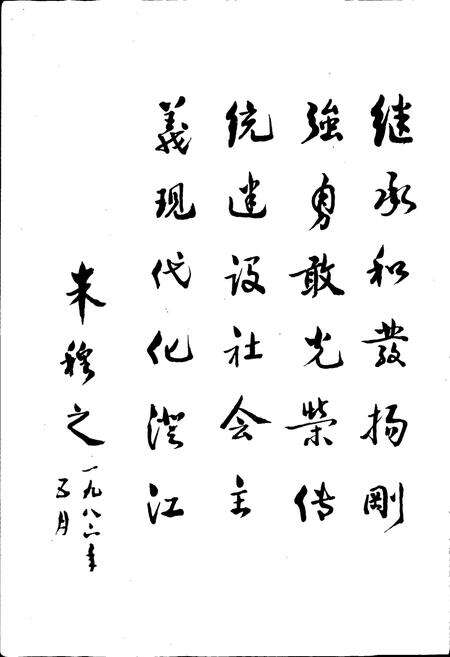 继承和發扬剛
強勇敢光荣传
统建设社会主
義现代化澄江
朱穆之
一九八六年
五月